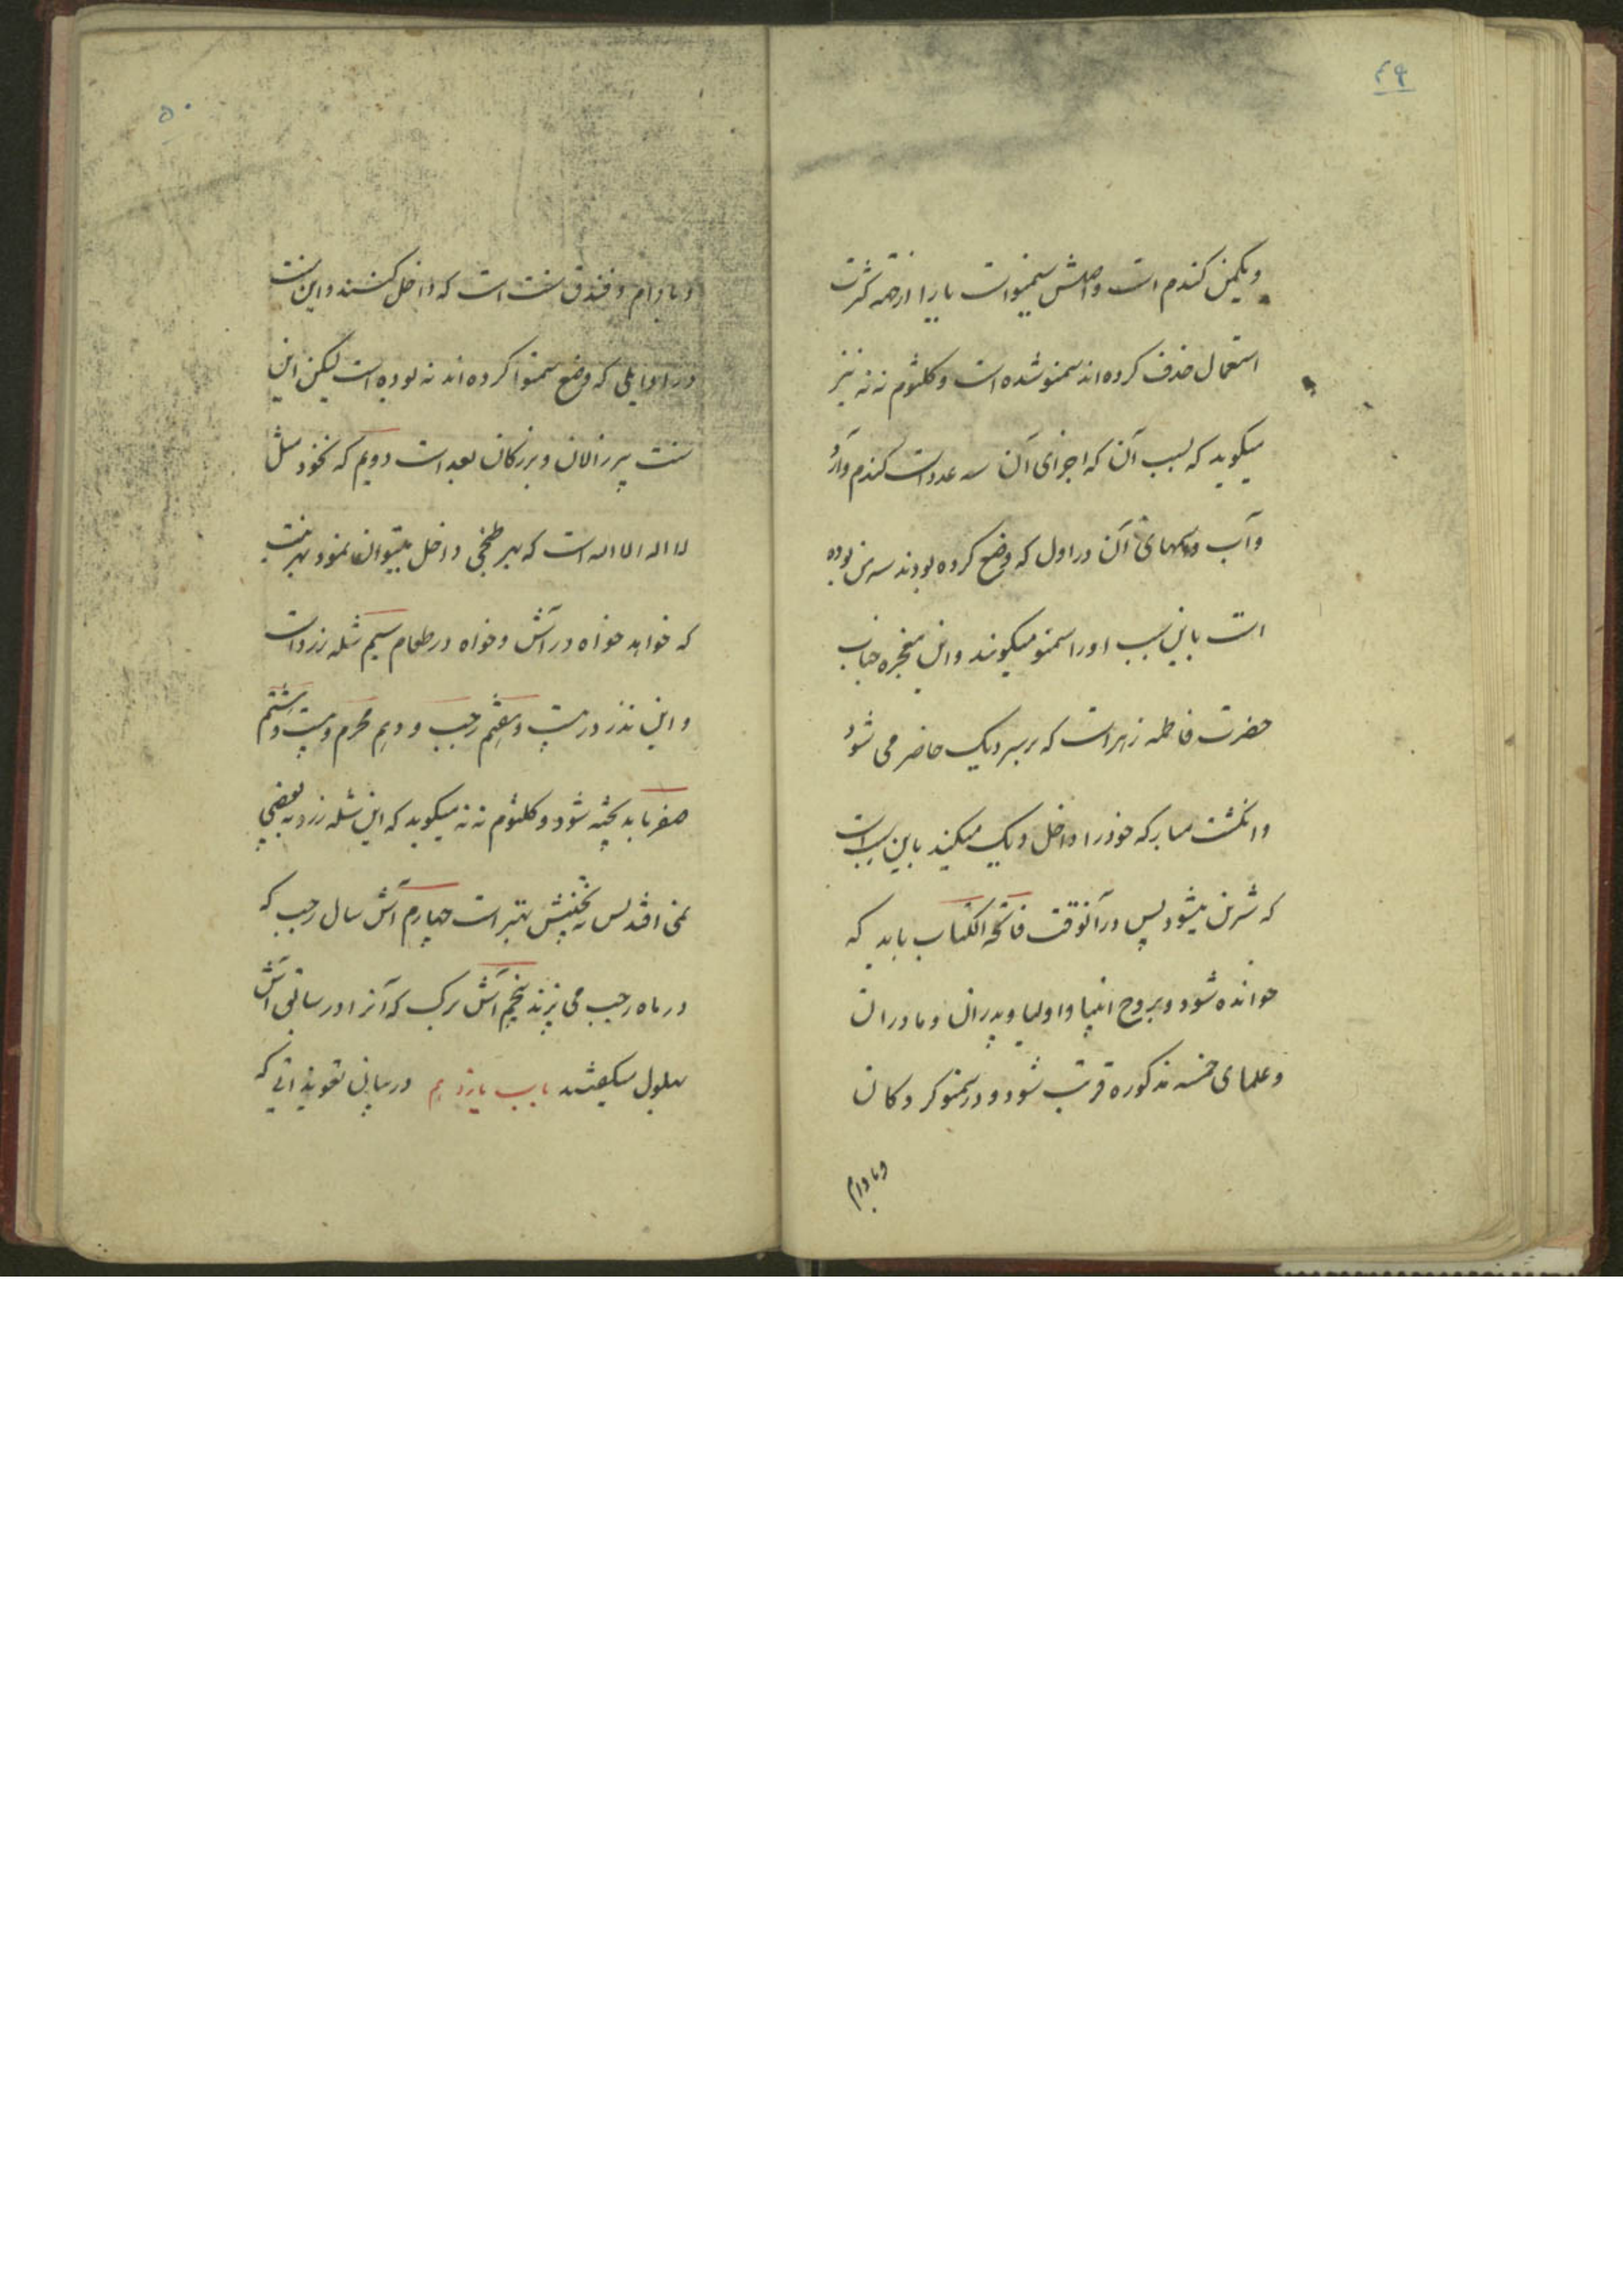 ۴۹
ویکمن کندم است واصلش سیمنو است یا را از جهة کثرت
استعمال حذف کرده‌اند سمنو شده است وکلثوم ننه نیز
میکوید که بسبب آن که اجزای آن سه عدد است کندم وآرد
وآب ومنهای آن در اول که وضع کرده بودند سه من بوده
است باین سبب اورا سمنو میکویند واین پنجره جناب
حضرت فاطمه زهرا است که بر سر دیک حاضر می شود
وانکشت مبارکه خودرا داخل دیک میکند باین سبب است
که شرین میشود پس در آنوقت فاتحة الکتاب باید که
خوانده شود وبروح انبیا واولیا وپدران ومادران
وعلمای خمسه مذکوره قربت شود ودر سمنو کردکان
وبادام
۵۰
وبادام وفندق سنت است که داخل کنند واین سنت
در اوایلی که وضع سمنو کرده‌اند نه بوده است لیکن این
سنت پیرزالان وبزرکان بعد است دویم که نخود مثل
لا اله الا الله است که بهر طبخی داخل میتوان نمود بهر نیت
که خواهد خواه در آش وخواه در طعام سیم شله زرد است
واین نذر در بیست وهفتم رجب ودهم محرم وبیست وهشتم
صفر باید پخته شود وکلثوم ننه میکوید که این شله زرد به بعضی
نمی افتد پس نه پختنش بهتر است چهارم آش سال رجب که
در ماه رجب می پزند پنجم آش برک که آنرا در سابق آش
بهلول میکفتند باب یازدهم در بیان تعویذاتی که